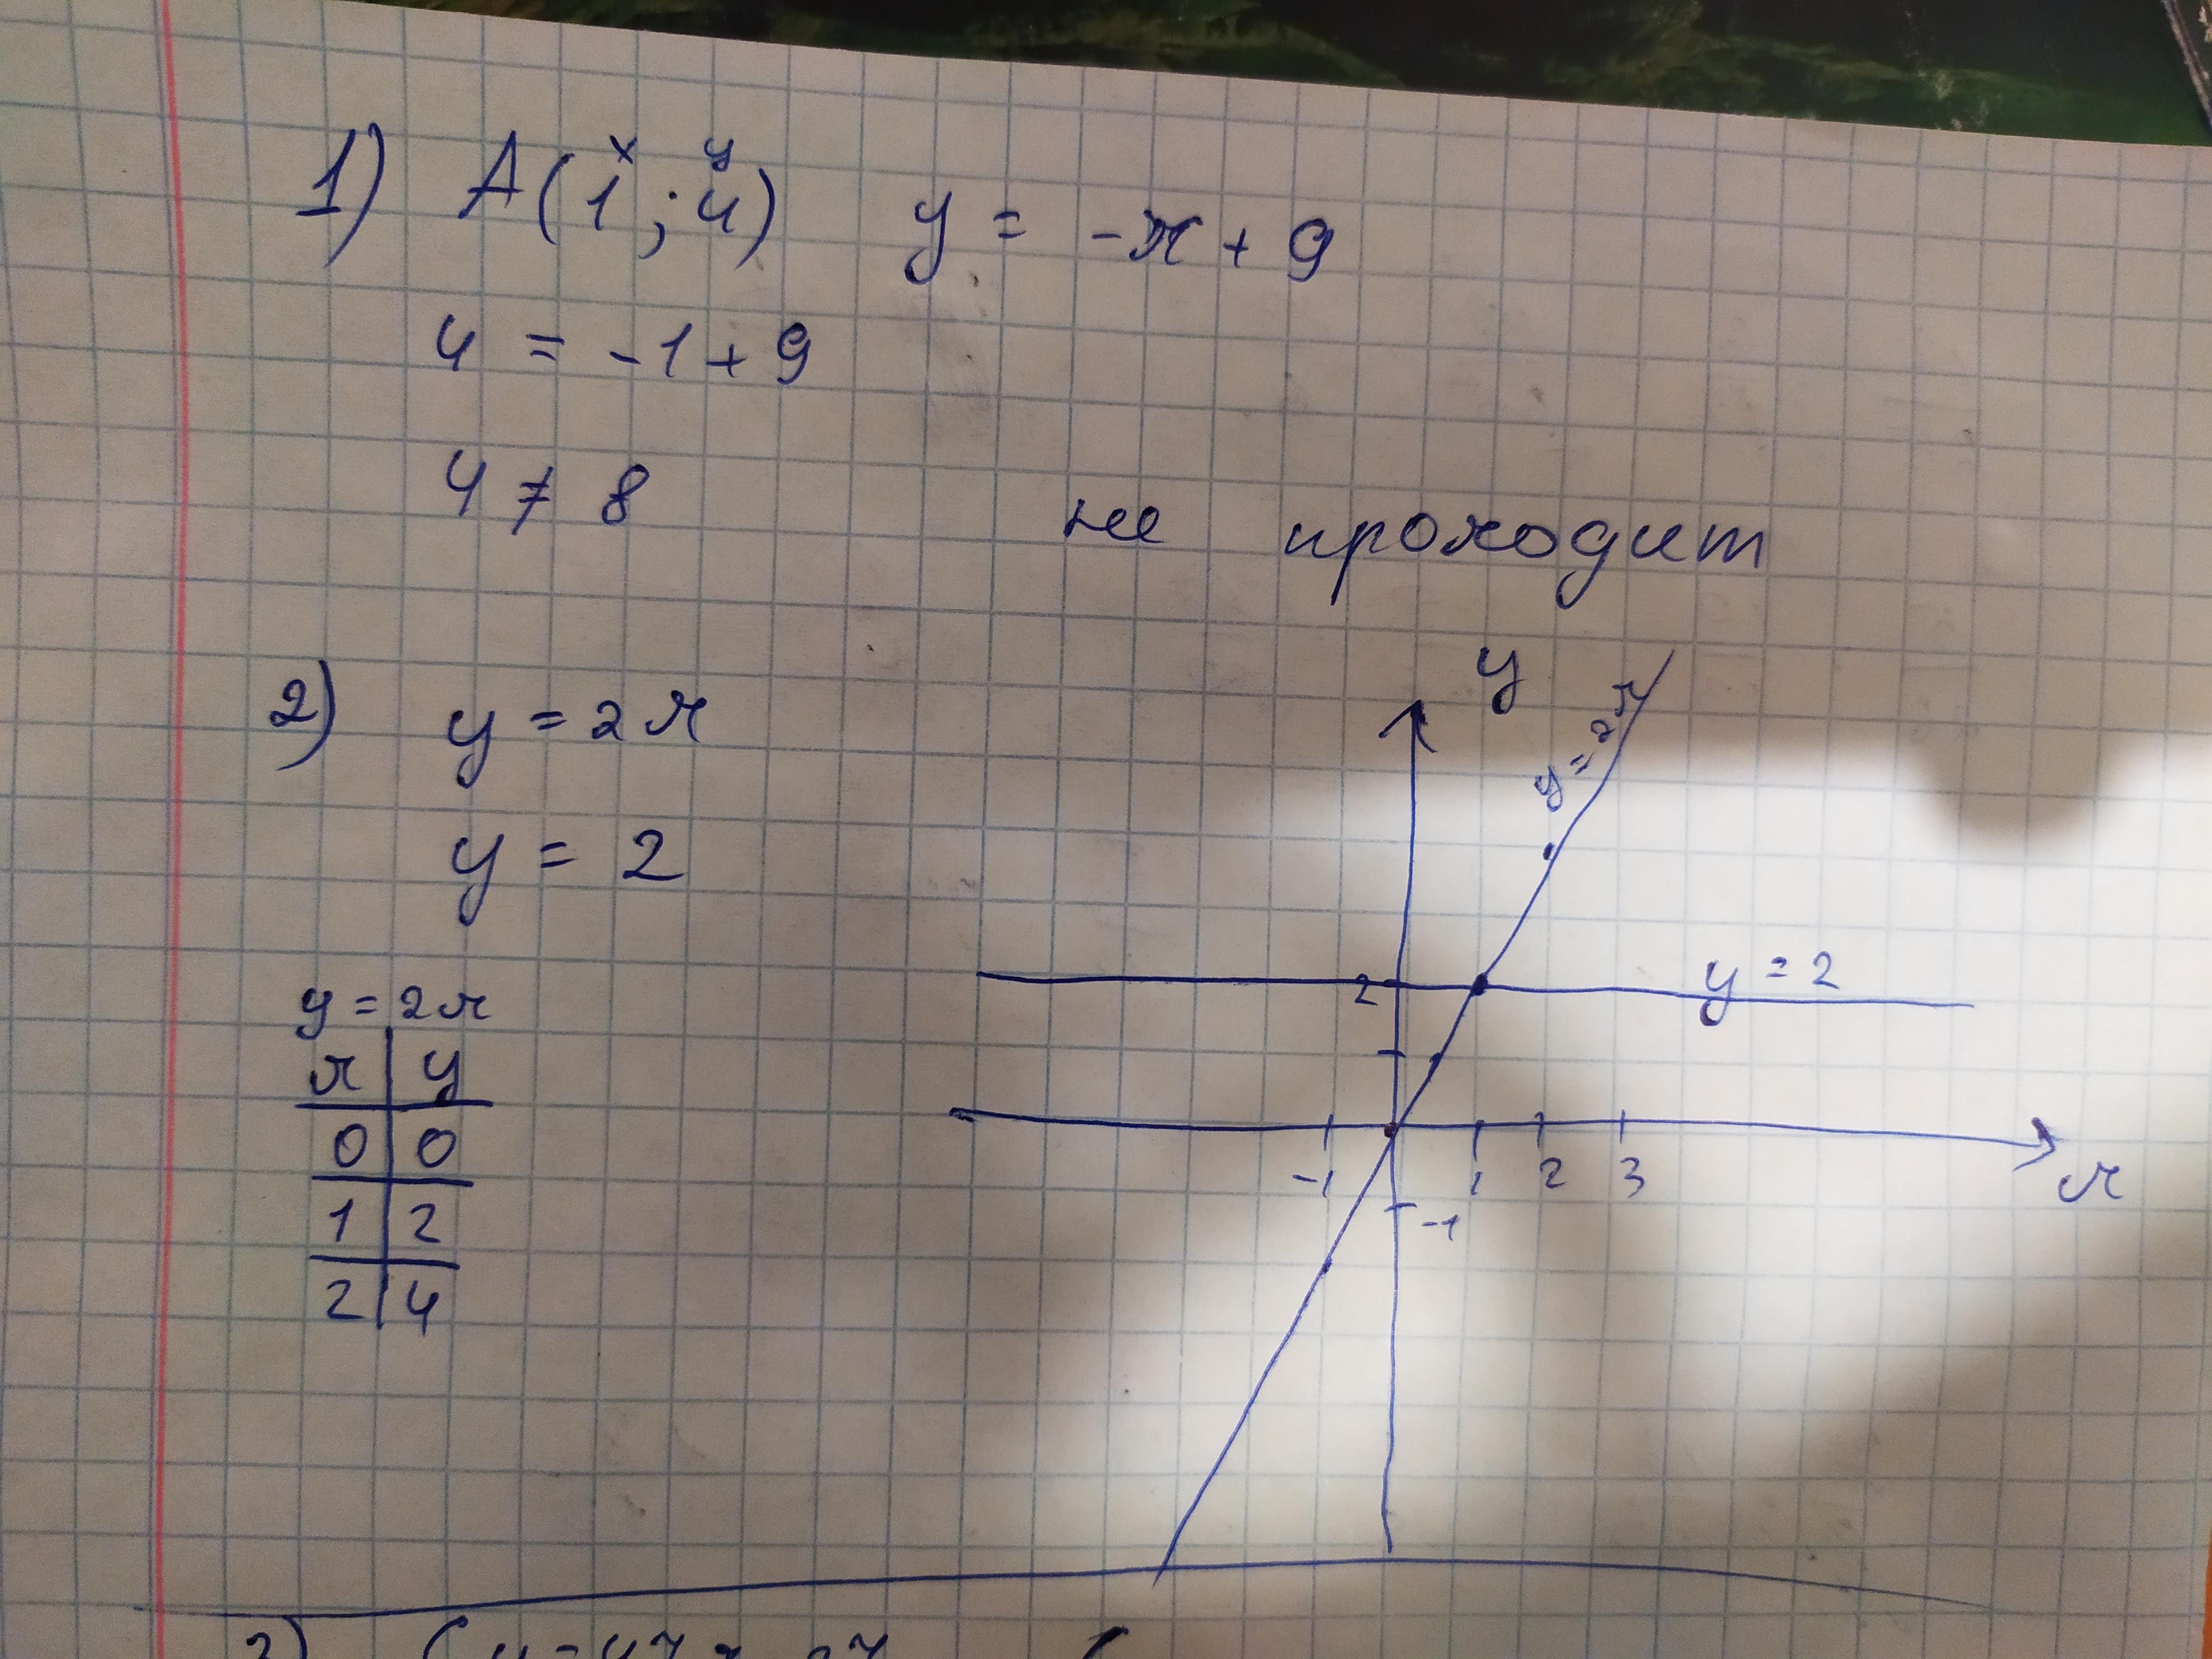 1) A(1;4) y = -x + 9
x y
4 = -1 + 9
4 ≠ 8 не проходит
2) y = 2x
y = 2
y = 2x
x | y
0 | 0
1 | 2
2 | 4
y
y = 2x
y = 2
2
-1 1 2 3
x
-1